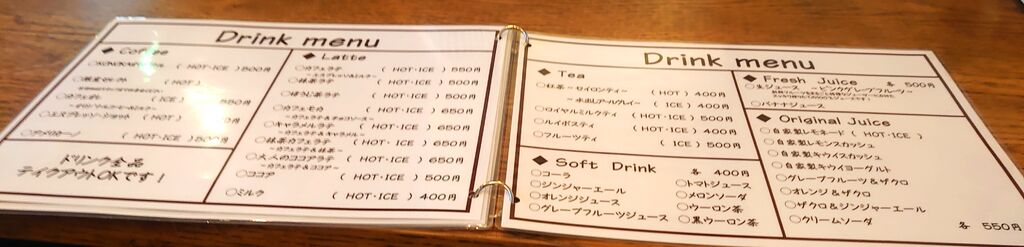 Drink menu
◆ Coffee
(HOT・ICE) 500円
(HOT)
(ICE)
(HOT・ICE)
(HOT・ICE)
ドリンク全品
テイクアウトOKです！
◆ Latte
○カフェラテ (HOT・ICE) 550円
○抹茶ラテ (HOT・ICE) 500円
○ほうじ茶ラテ (HOT・ICE) 500円
○カフェモカ (HOT・ICE) 650円
○キャラメルラテ (HOT・ICE) 650円
～カフェラテ&キャラメル～
○抹茶カフェラテ (HOT・ICE) 650円
～カフェラテ&抹茶～
○大人のココアラテ (HOT・ICE) 650円
～カフェラテ&ココア～
○ココア (HOT・ICE) 500円
○ミルク (HOT・ICE) 400円
Drink menu
◆ Tea
○紅茶 ～セイロンティー～ (HOT) 400円
(ICE) 400円
○ロイヤルミルクティ (HOT・ICE) 500円
○ルイボスティ (HOT・ICE) 400円
○フルーツティ (ICE) 500円
◆ Soft Drink 各 400円
○コーラ
○ジンジャーエール
○オレンジジュース
○グレープフルーツジュース
○トマトジュース
○メロンソーダ
○ウーロン茶
○黒ウーロン茶
◆ Fresh Juice 各 500円
○生ジュース ～ピンクグレープフルーツ～
○バナナジュース
◆ Original Juice
○自家製レモネード (HOT・ICE)
○自家製レモンスカッシュ
○自家製キウイスカッシュ
○自家製キウイヨーグルト
○グレープフルーツ&ザクロ
○オレンジ&ザクロ
○ザクロ&ジンジャーエール
○クリームソーダ
各 550円